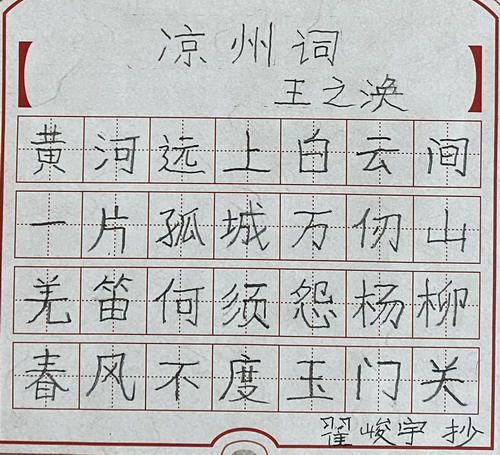 凉州词
王之涣
黄河远上白云间
一片孤城万仞山
羌笛何须怨杨柳
春风不度玉门关
翟峻宇 抄